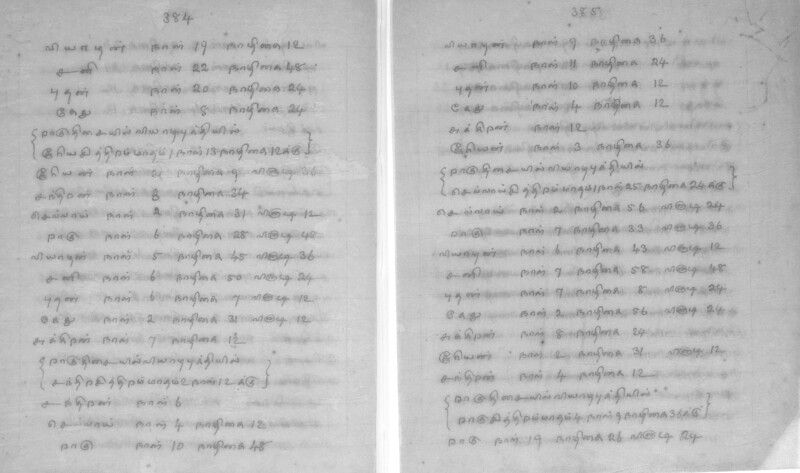 384
வியாழன் நாள் 19 நாழிகை 12
சனி நாள் 22 நாழிகை 48
புதன் நாள் 20 நாழிகை 24
கேது நாள் 8 நாழிகை 24
ராகுதிசையில் வியாழபுத்தியில்
நாள் 13 நாழிகை 12க்கு
சூரியன் நாள் 3 நாழிகை 9 விநாடி 36
சந்திரன் நாள் 3 நாழிகை 34
செவ்வாய் நாள் 2 நாழிகை 31 விநாடி 12
ராகு நாள் 6 நாழிகை 28 விநாடி 48
வியாழன் நாள் 5 நாழிகை 45 விநாடி 36
சனி நாள் 6 நாழிகை 50 விநாடி 24
புதன் நாள் 6 நாழிகை 7 விநாடி 12
கேது நாள் 2 நாழிகை 31 விநாடி 12
சுக்கிரன் நாள் 7 நாழிகை 12
ராகுதிசையில் வியாழபுத்தியில்
நாள் 12க்கு
சந்திரன் நாள் 6
செவ்வாய் நாள் 4 நாழிகை 12
ராகு நாள் 10 நாழிகை 48
385
வியாழன் நாள் 9 நாழிகை 36
சனி நாள் 11 நாழிகை 24
புதன் நாள் 10 நாழிகை 12
கேது நாள் 4 நாழிகை 12
சுக்கிரன் நாள் 12
சூரியன் நாள் 3 நாழிகை 36
ராகுதிசையில் வியாழபுத்தியில்
நாள் 25 நாழிகை 24க்கு
செவ்வாய் நாள் 2 நாழிகை 56 விநாடி 24
ராகு நாள் 7 நாழிகை 33 விநாடி 36
வியாழன் நாள் 6 நாழிகை 43 விநாடி 12
சனி நாள் 7 நாழிகை 58 விநாடி 48
புதன் நாள் 7 நாழிகை 8 விநாடி 24
கேது நாள் 2 நாழிகை 56 விநாடி 24
சுக்கிரன் நாள் 8 நாழிகை 24
சூரியன் நாள் 2 நாழிகை 31 விநாடி 12
சந்திரன் நாள் 4 நாழிகை 12
ராகுதிசையில் வியாழபுத்தியில்
நாள் 9 நாழிகை 36க்கு
ராகு நாள் 19 நாழிகை 26 விநாடி 24